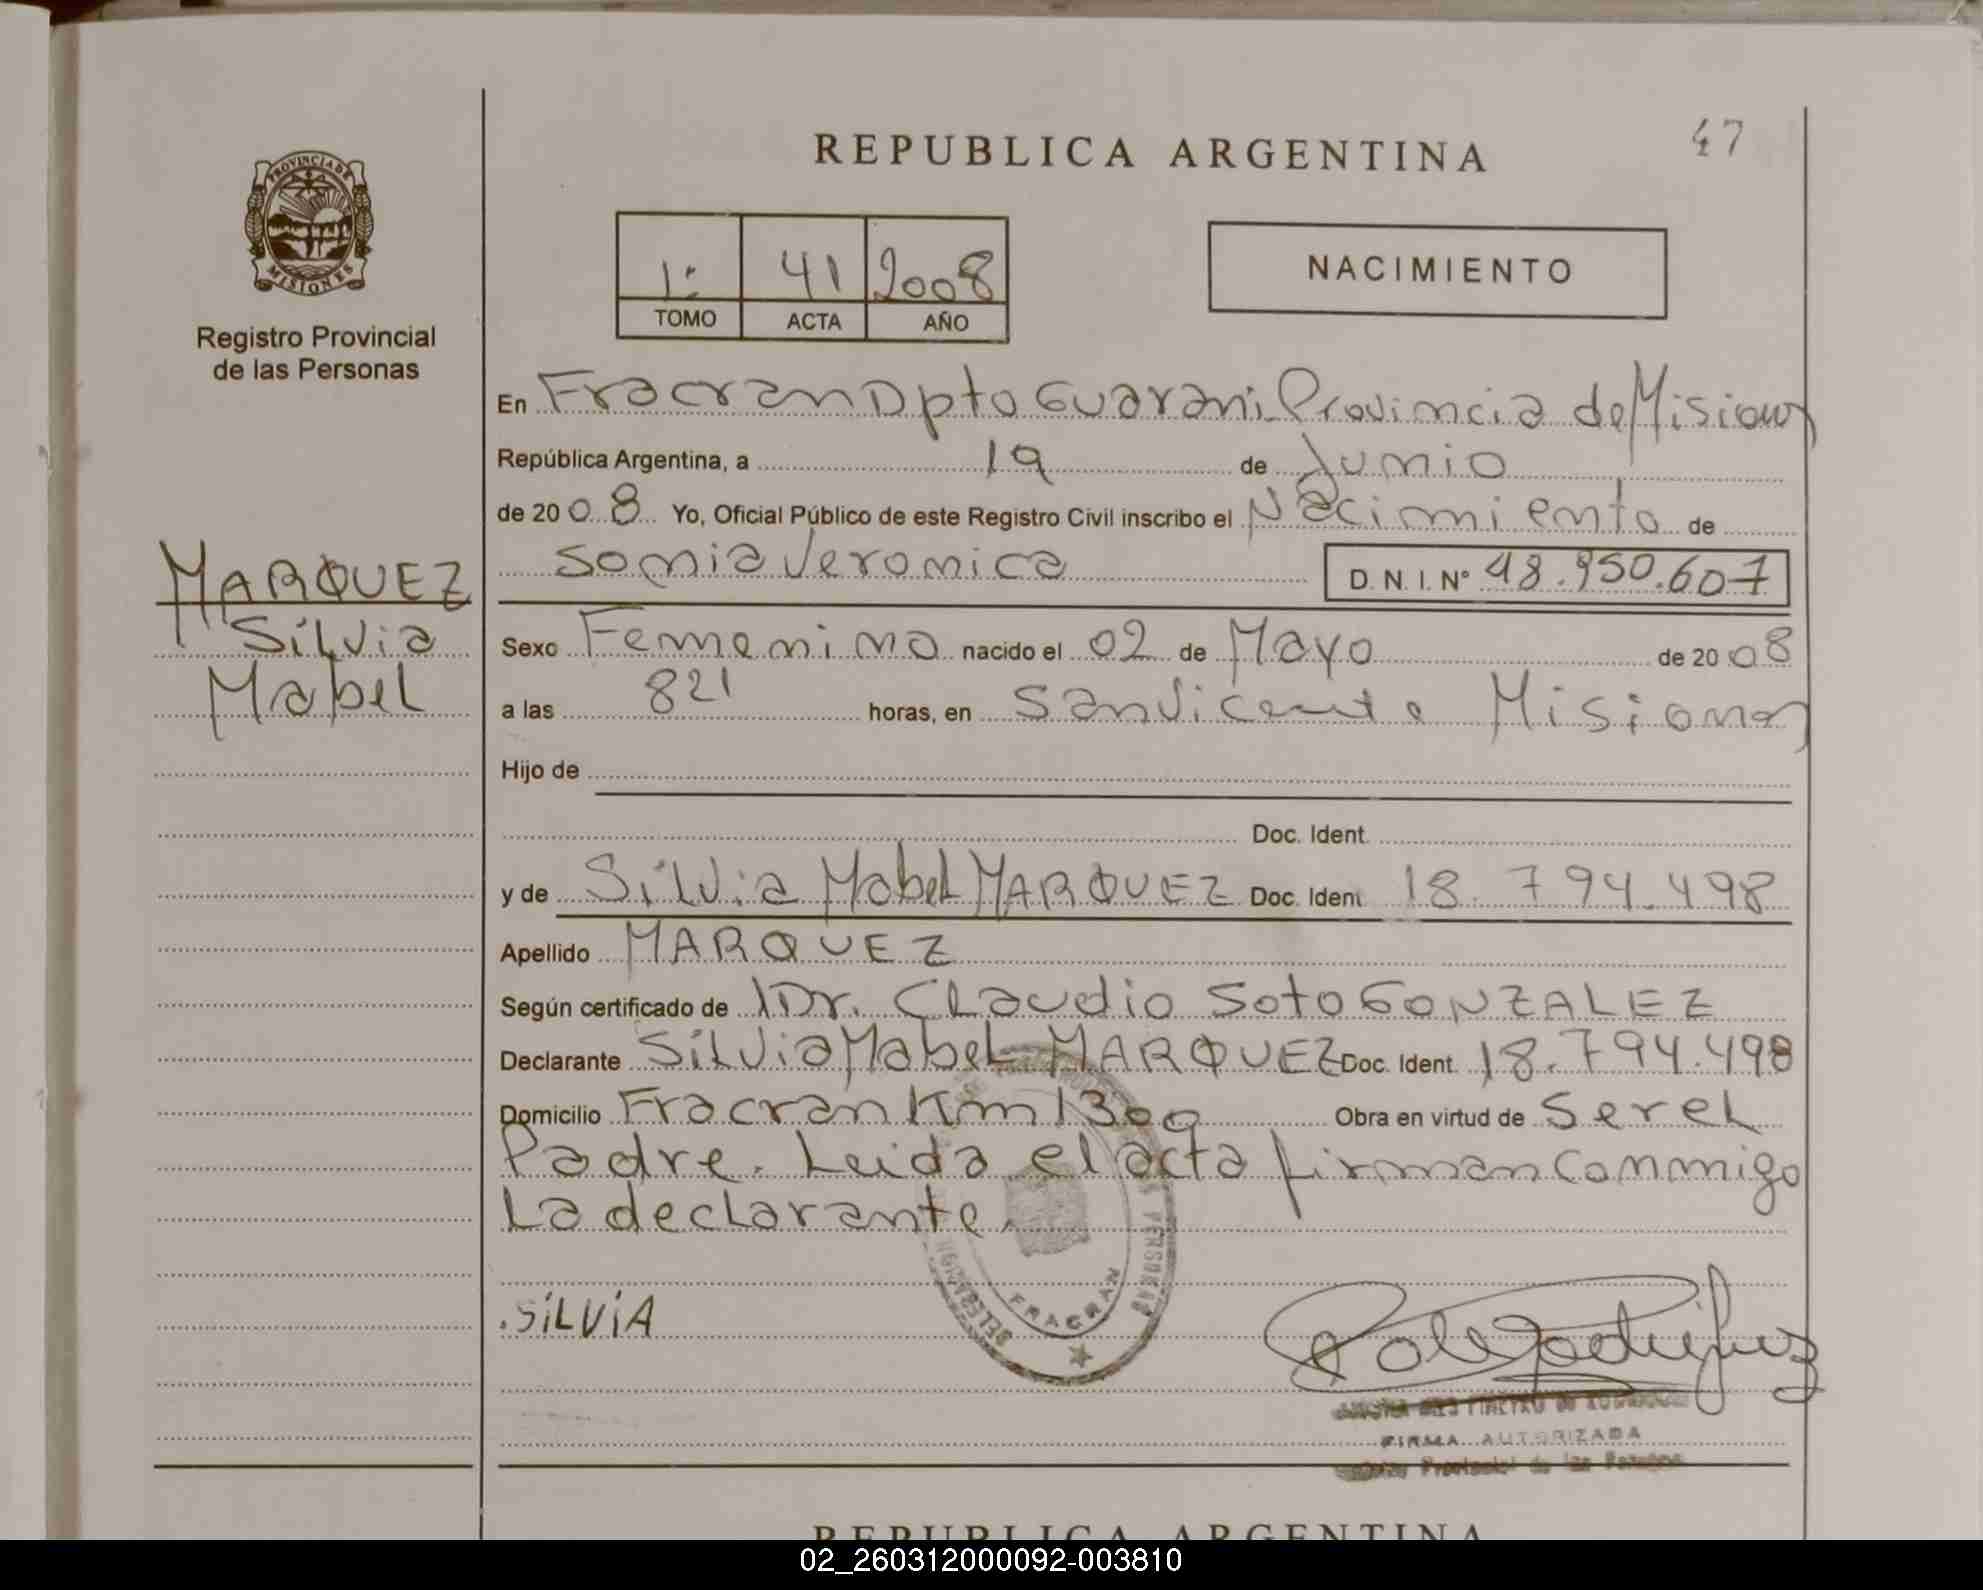 47
REPUBLICA ARGENTINA
PROVINCIA DE
MISIONES
Registro Provincial
de las Personas
1º 41 2008
TOMO ACTA AÑO
NACIMIENTO
En Fracran Dpto Guarani Provincia de Misiones
República Argentina, a 19 de Junio
de 2008 Yo, Oficial Público de este Registro Civil inscribo el Nacimiento de
Sonia Veronica D.N.I. Nº 48.950.607
MARQUEZ
Silvia
Mabel
Sexo Femenino nacido el 02 de Mayo de 2008
a las 821 horas, en San Vicente Misiones
Hijo de
Doc. Ident.
y de Silvia Mabel MARQUEZ Doc. Ident 18.794.498
Apellido MARQUEZ
Según certificado de Dr. Claudio Soto GONZALEZ
Declarante Silvia Mabel MARQUEZ Doc. Ident. 18.794.498
Domicilio Fracran Km 1300 Obra en virtud de Ser el
Padre. Leida el acta firman conmigo
La declarante.
DELEGACION FRACRAN
PERSONAS
SILVIA
FIRMA AUTORIZADA
Provincial de las Personas
REPUBLICA ARGENTINA
02_260312000092-003810